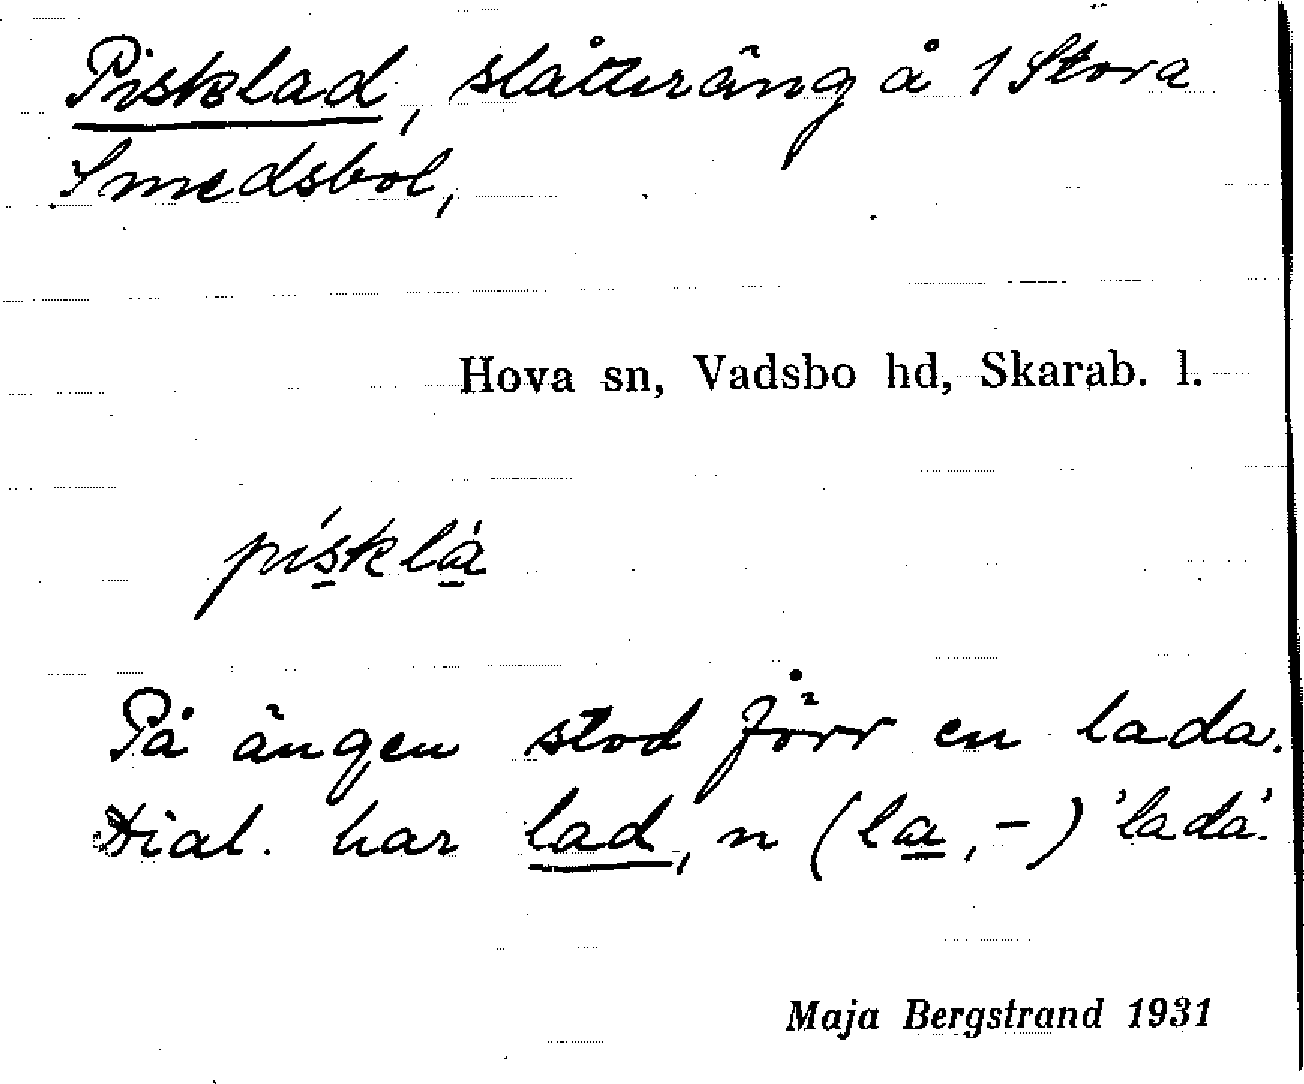 Pisklad, slåtteräng å 1 Stora
Smedsbol,
Hova sn, Vadsbo hd, Skarab. l.
písklà
På ängen stod förr en lada.
Dial. har lad, n (la, -) 'lada'.
Maja Bergstrand 1931